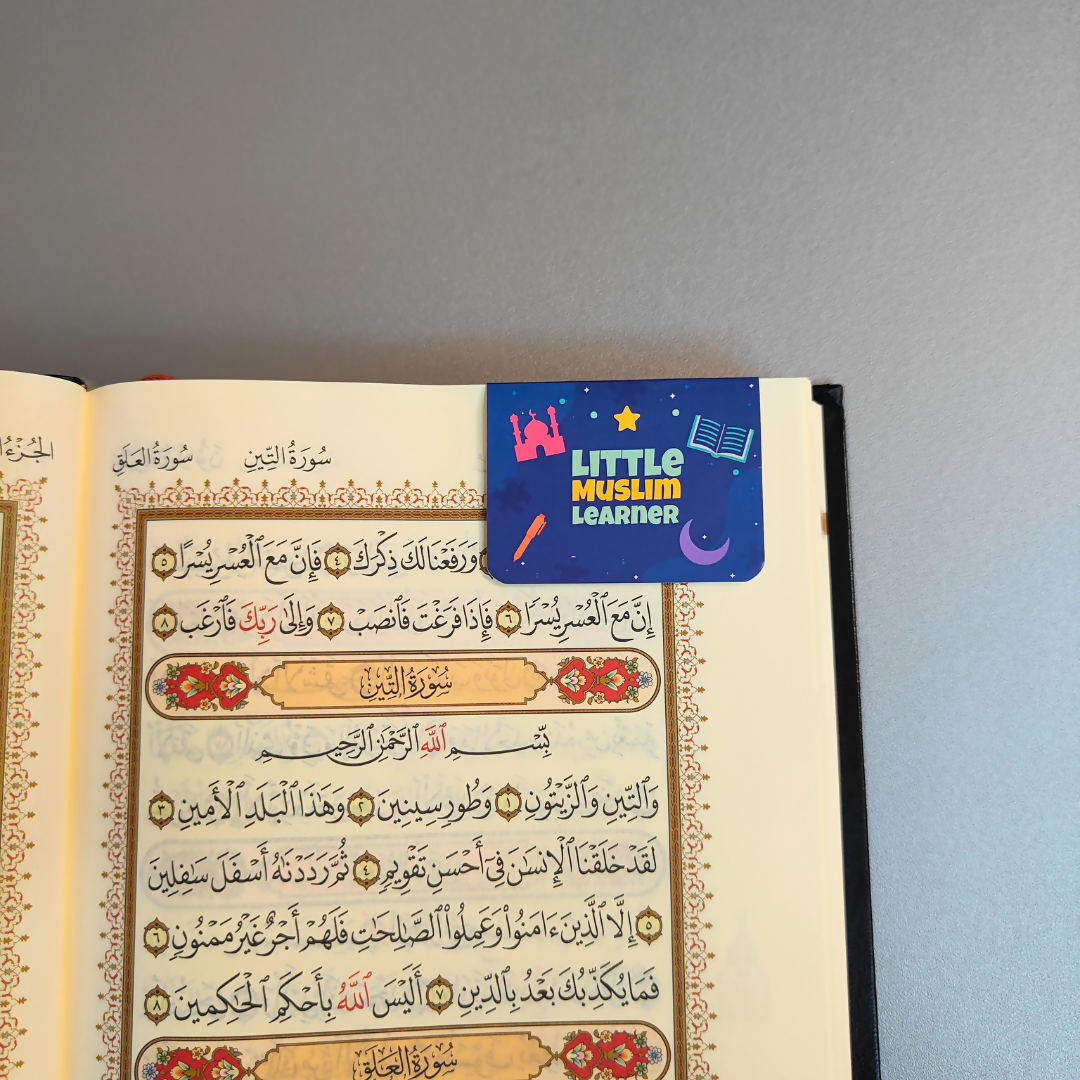 الجزء
سُورَةُ التِّينِ سُورَةُ العَلَقِ
LITTLE
MUSLIM
LEARNER
وَرَفَعْنَا لَكَ ذِكْرَكَ ٤ فَإِنَّ مَعَ ٱلْعُسْرِ يُسْرًا ٥
إِنَّ مَعَ ٱلْعُسْرِ يُسْرًا ٦ فَإِذَا فَرَغْتَ فَٱنصَبْ ٧ وَإِلَىٰ رَبِّكَ فَٱرْغَب ٨
سُورَةُ التِّينِ
بِسْمِ ٱللَّهِ ٱلرَّحْمَٰنِ ٱلرَّحِيمِ
وَٱلتِّينِ وَٱلزَّيْتُونِ ١ وَطُورِ سِينِينَ ٢ وَهَٰذَا ٱلْبَلَدِ ٱلْأَمِينِ ٣
لَقَدْ خَلَقْنَا ٱلْإِنسَٰنَ فِىٓ أَحْسَنِ تَقْوِيمٍ ٤ ثُمَّ رَدَدْنَٰهُ أَسْفَلَ سَٰفِلِينَ
٥ إِلَّا ٱلَّذِينَ ءَامَنُوا۟ وَعَمِلُوا۟ ٱلصَّٰلِحَٰتِ فَلَهُمْ أَجْرٌ غَيْرُ مَمْنُونٍ ٦
فَمَا يُكَذِّبُكَ بَعْدُ بِٱلدِّينِ ٧ أَلَيْسَ ٱللَّهُ بِأَحْكَمِ ٱلْحَٰكِمِينَ ٨
سُورَةُ العَلَقِ